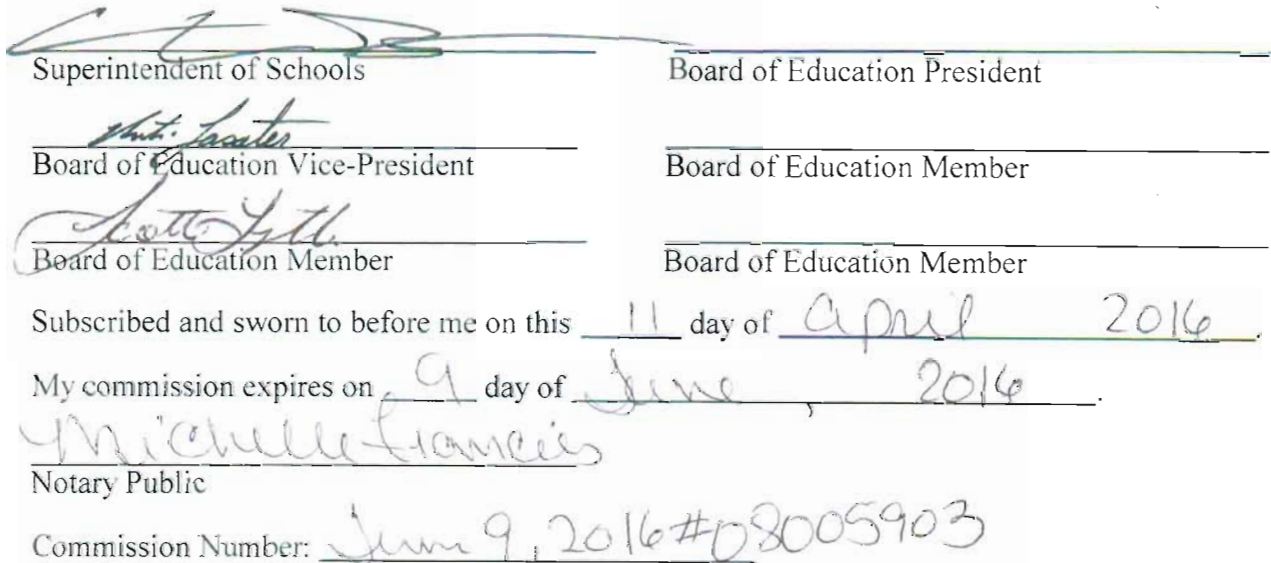 Superintendent of Schools Board of Education President
Lasater
Board of Education Vice-President Board of Education Member
Scott
Board of Education Member Board of Education Member
Subscribed and sworn to before me on this 11 day of April 2016.
My commission expires on 9 day of June, 2016.
Michelle Francies
Notary Public
Commission Number: June 9, 2016 #08005903